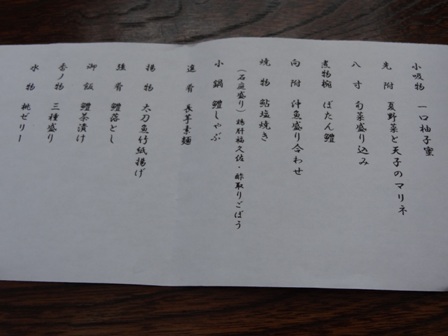 小吸物 一口柚子蜜
先附 夏野菜と天子のマリネ
八寸 旬菜盛り込み
煮物椀 ぼたん鱧
向附 沖魚盛り合わせ
焼物 鮎塩焼き
(石庭盛り) 鶏肝福久佐・酢取りごぼう
小鍋 鱧しゃぶ
進肴 長芋素麺
揚物 太刀魚竹紙揚げ
強肴 鱧落とし
御飯 鱧茶漬け
香ノ物 三種盛り
水物 桃ゼリー